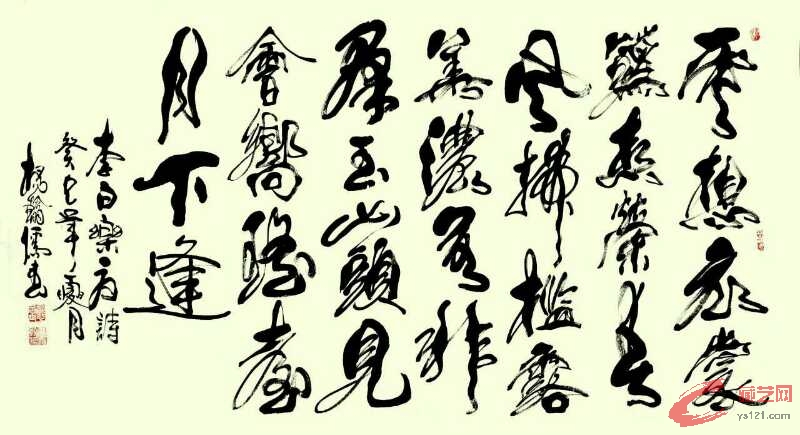 雲想衣裳
花想容春
風拂檻露
華濃若非
群玉山頭見
會嚮瑤臺
月下逢
李白樂府詩
癸巳年夏月
楊翰儒書
藏艺网
ys121.com